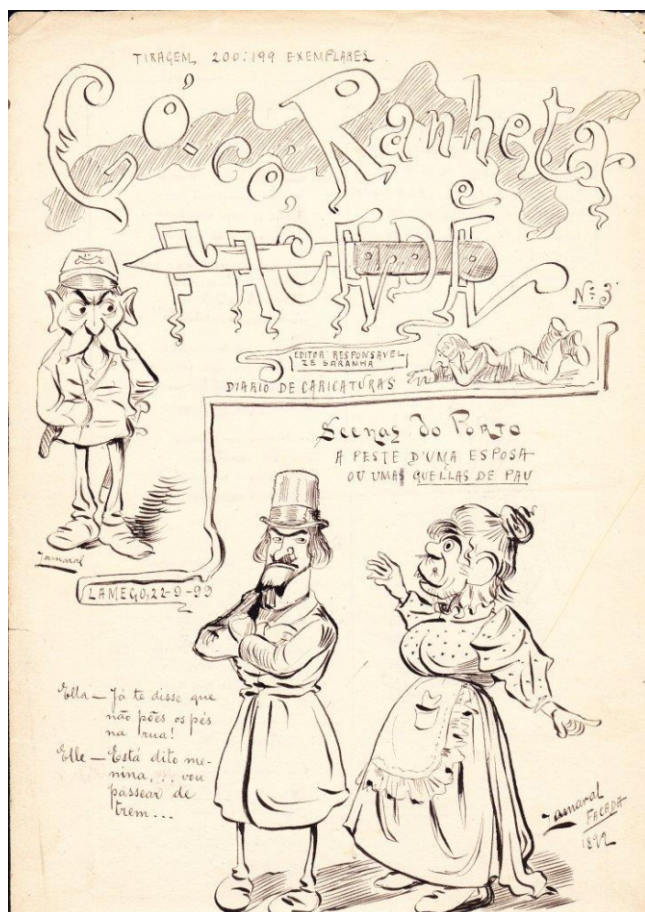 TIRAGEM, 200:199 EXEMPLARES
Có-có, Ranheta
FACADA
Nº 3
EDITOR RESPONSAVEL
ZÉ SARANHA
DIARIO DE CARICATURAS
Scenas do Porto
A PESTE D'UMA ESPOSA
OU UMAS QUELLAS DE PAU
LAMEGO, 22-9-99
Ella — Já te disse que
não pões os pés
na rua!
Elle — Está dito me-
nina,... vou
passear de
trem...
FACADA